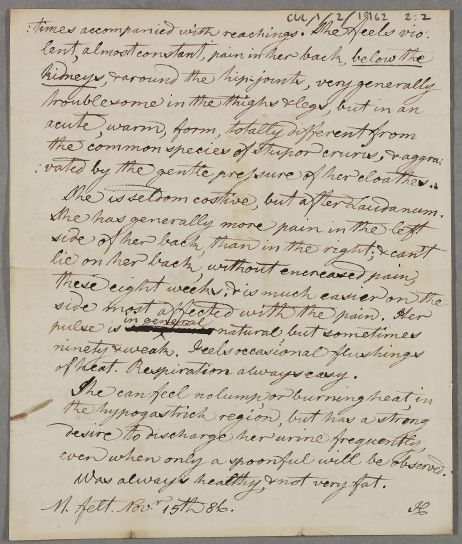 CUL/1/2/1962 2:2
:times accompanied with reachings. She feels vio-
lent, almost constant, pain in her back, below the
kidneys, & around the hip joints, very generally
troublesome in the thighs & legs, but in an
acute, warm, form, totally different from
the common species of stupor cruris, & aggra:
:vated by the gentle pressure of her cloathes.
She is seldom costive, but after Laudanum.
She has generally more pain in the left
side of her back, than in the right; & can't
lie on her back, without encreased pain,
these eight weeks, & is much easier on the
side most affected with the pain. Her
pulse is in general natural but sometimes
ninety & weak. Feels occasional flushings
of heat. Respiration always easy.
She can feel no lump or burning heat, in
the hypogastrick region, but has a strong
desire to discharge her urine frequently,
even when only a spoonful will be observed.
Was always healthy, & not very fat.
M. felt. Novr. 15th 86.